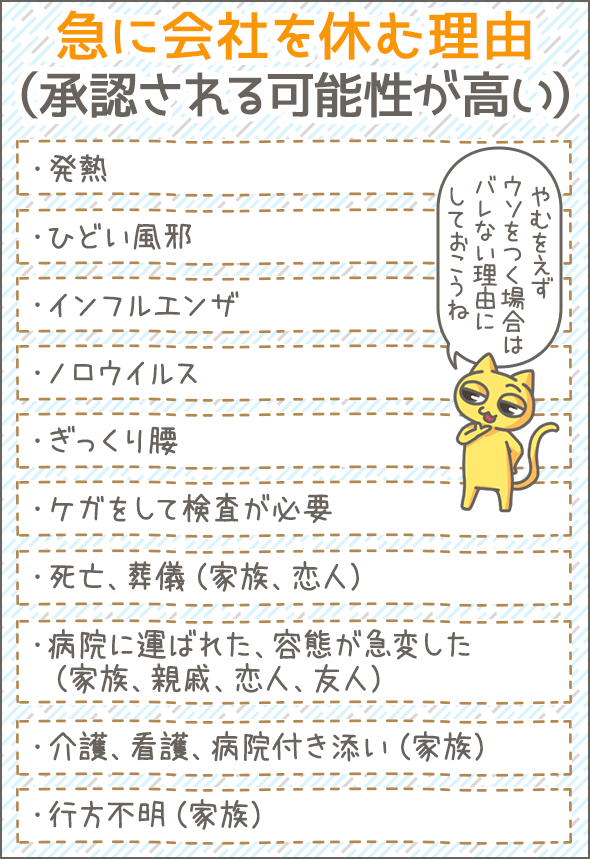 急に会社を休む理由
(承認される可能性が高い)
・発熱
・ひどい風邪
・インフルエンザ
・ノロウイルス
・ぎっくり腰
・ケガをして検査が必要
・死亡、葬儀(家族、恋人)
・病院に運ばれた、容態が急変した
(家族、親戚、恋人、友人)
・介護、看護、病院付き添い(家族)
・行方不明(家族)
やむをえず
ウソをつく場合は
バレない理由に
しておこうね